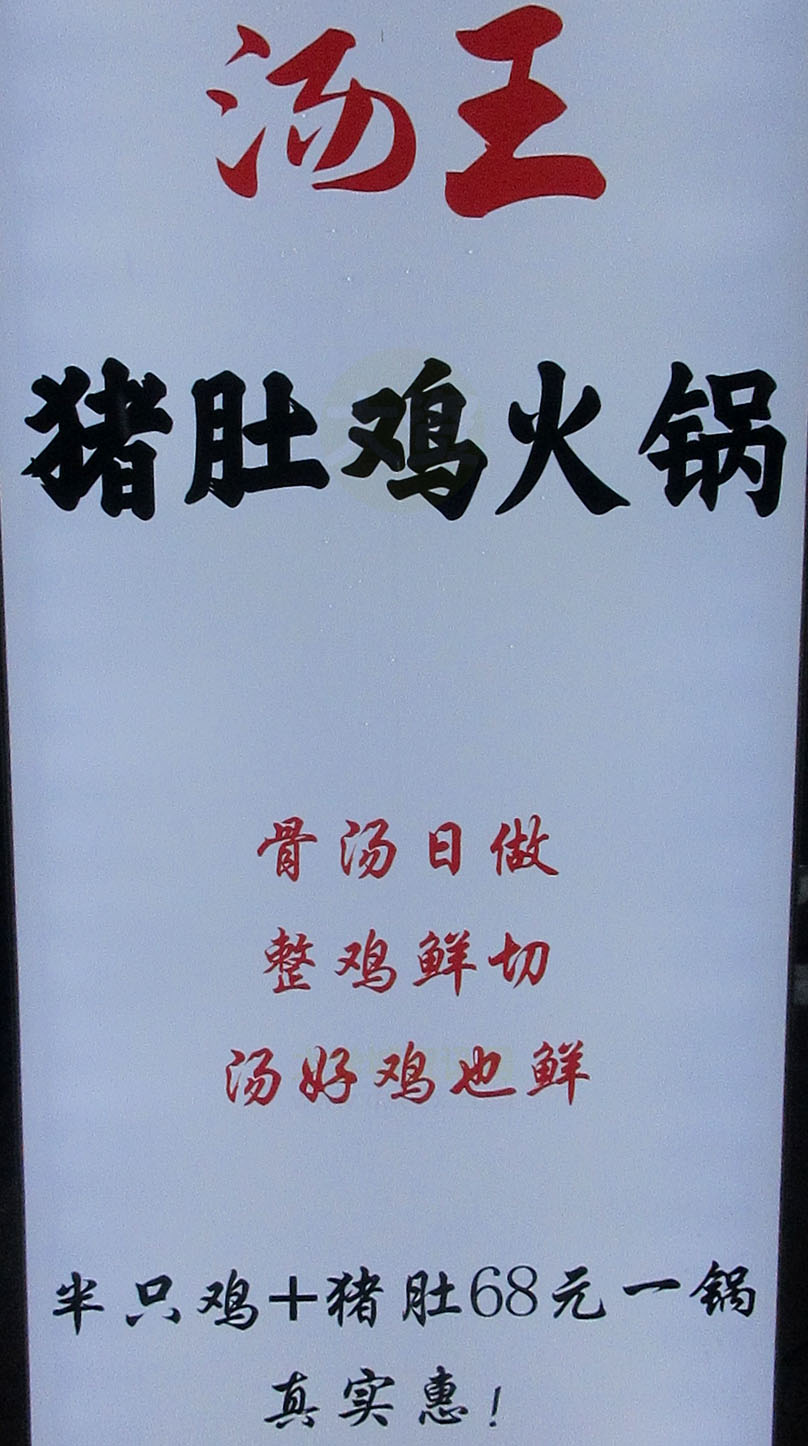 汤王
猪肚鸡火锅
骨汤日做
整鸡鲜切
汤好鸡也鲜
半只鸡+猪肚68元一锅
真实惠!